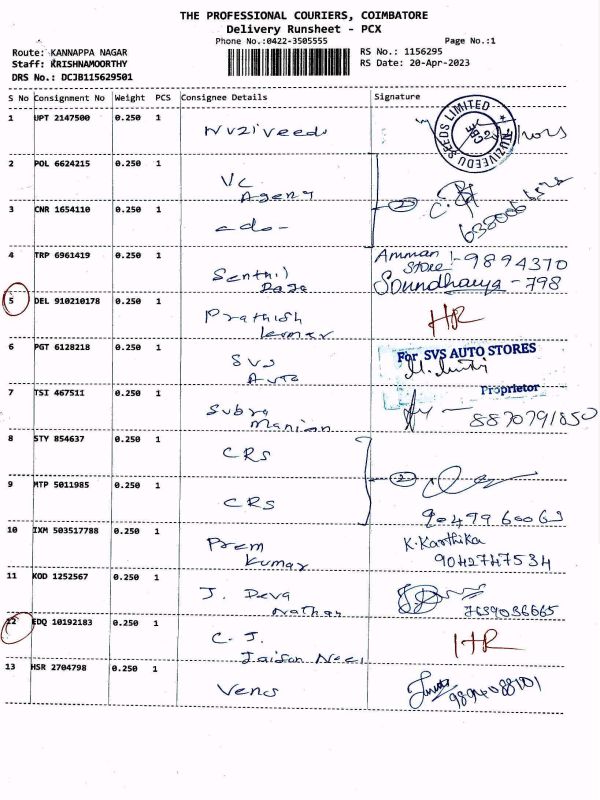 THE PROFESSIONAL COURIERS, COIMBATORE
Delivery Runsheet - PCX
Phone No.:0422-3505555 Page No.:1
Route: KANNAPPA NAGAR RS No.: 1156295
Staff: KRISHNAMOORTHY RS Date: 20-Apr-2023
DRS No.: DCJB115629501
S No Consignment No Weight PCS Consignee Details Signature
1 UPT 2147500 0.250 1 Nuziveedu
NUZIVEEDU SEEDS LIMITED
2 POL 6624215 0.250 1 VC
Agency
3 CNR 1654110 0.250 1 -do-
2
4 TRP 6961419 0.250 1 Senthil
Amman
Store :- 9894370
Soundharya - 798
5 DEL 910210178 0.250 1 Prathish
Kumar HR
6 PGT 6128218 0.250 1 SVS
Auto
For SVS AUTO STORES
Proprietor
7 TSI 467511 0.250 1 Subra
Manian 8870791850
8 STY 854637 0.250 1 CRS
9 MTP 5011985 0.250 1 CRS
2
9047960063
10 IXM 503517788 0.250 1 Prem
Kumar
K.Karthika
9042747534
11 KOD 1252567 0.250 1 J. Deva
Nathan 7639036665
12 EDQ 10192183 0.250 1 C. J.
Jaison HR
13 HSR 2704798 0.250 1 Vens